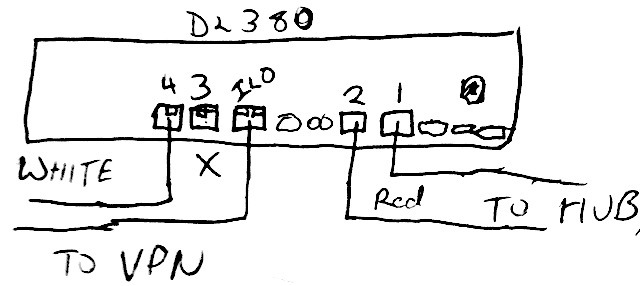 DL380
4 3 ILO 2 1
WHITE X Red TO HUB,
TO VPN